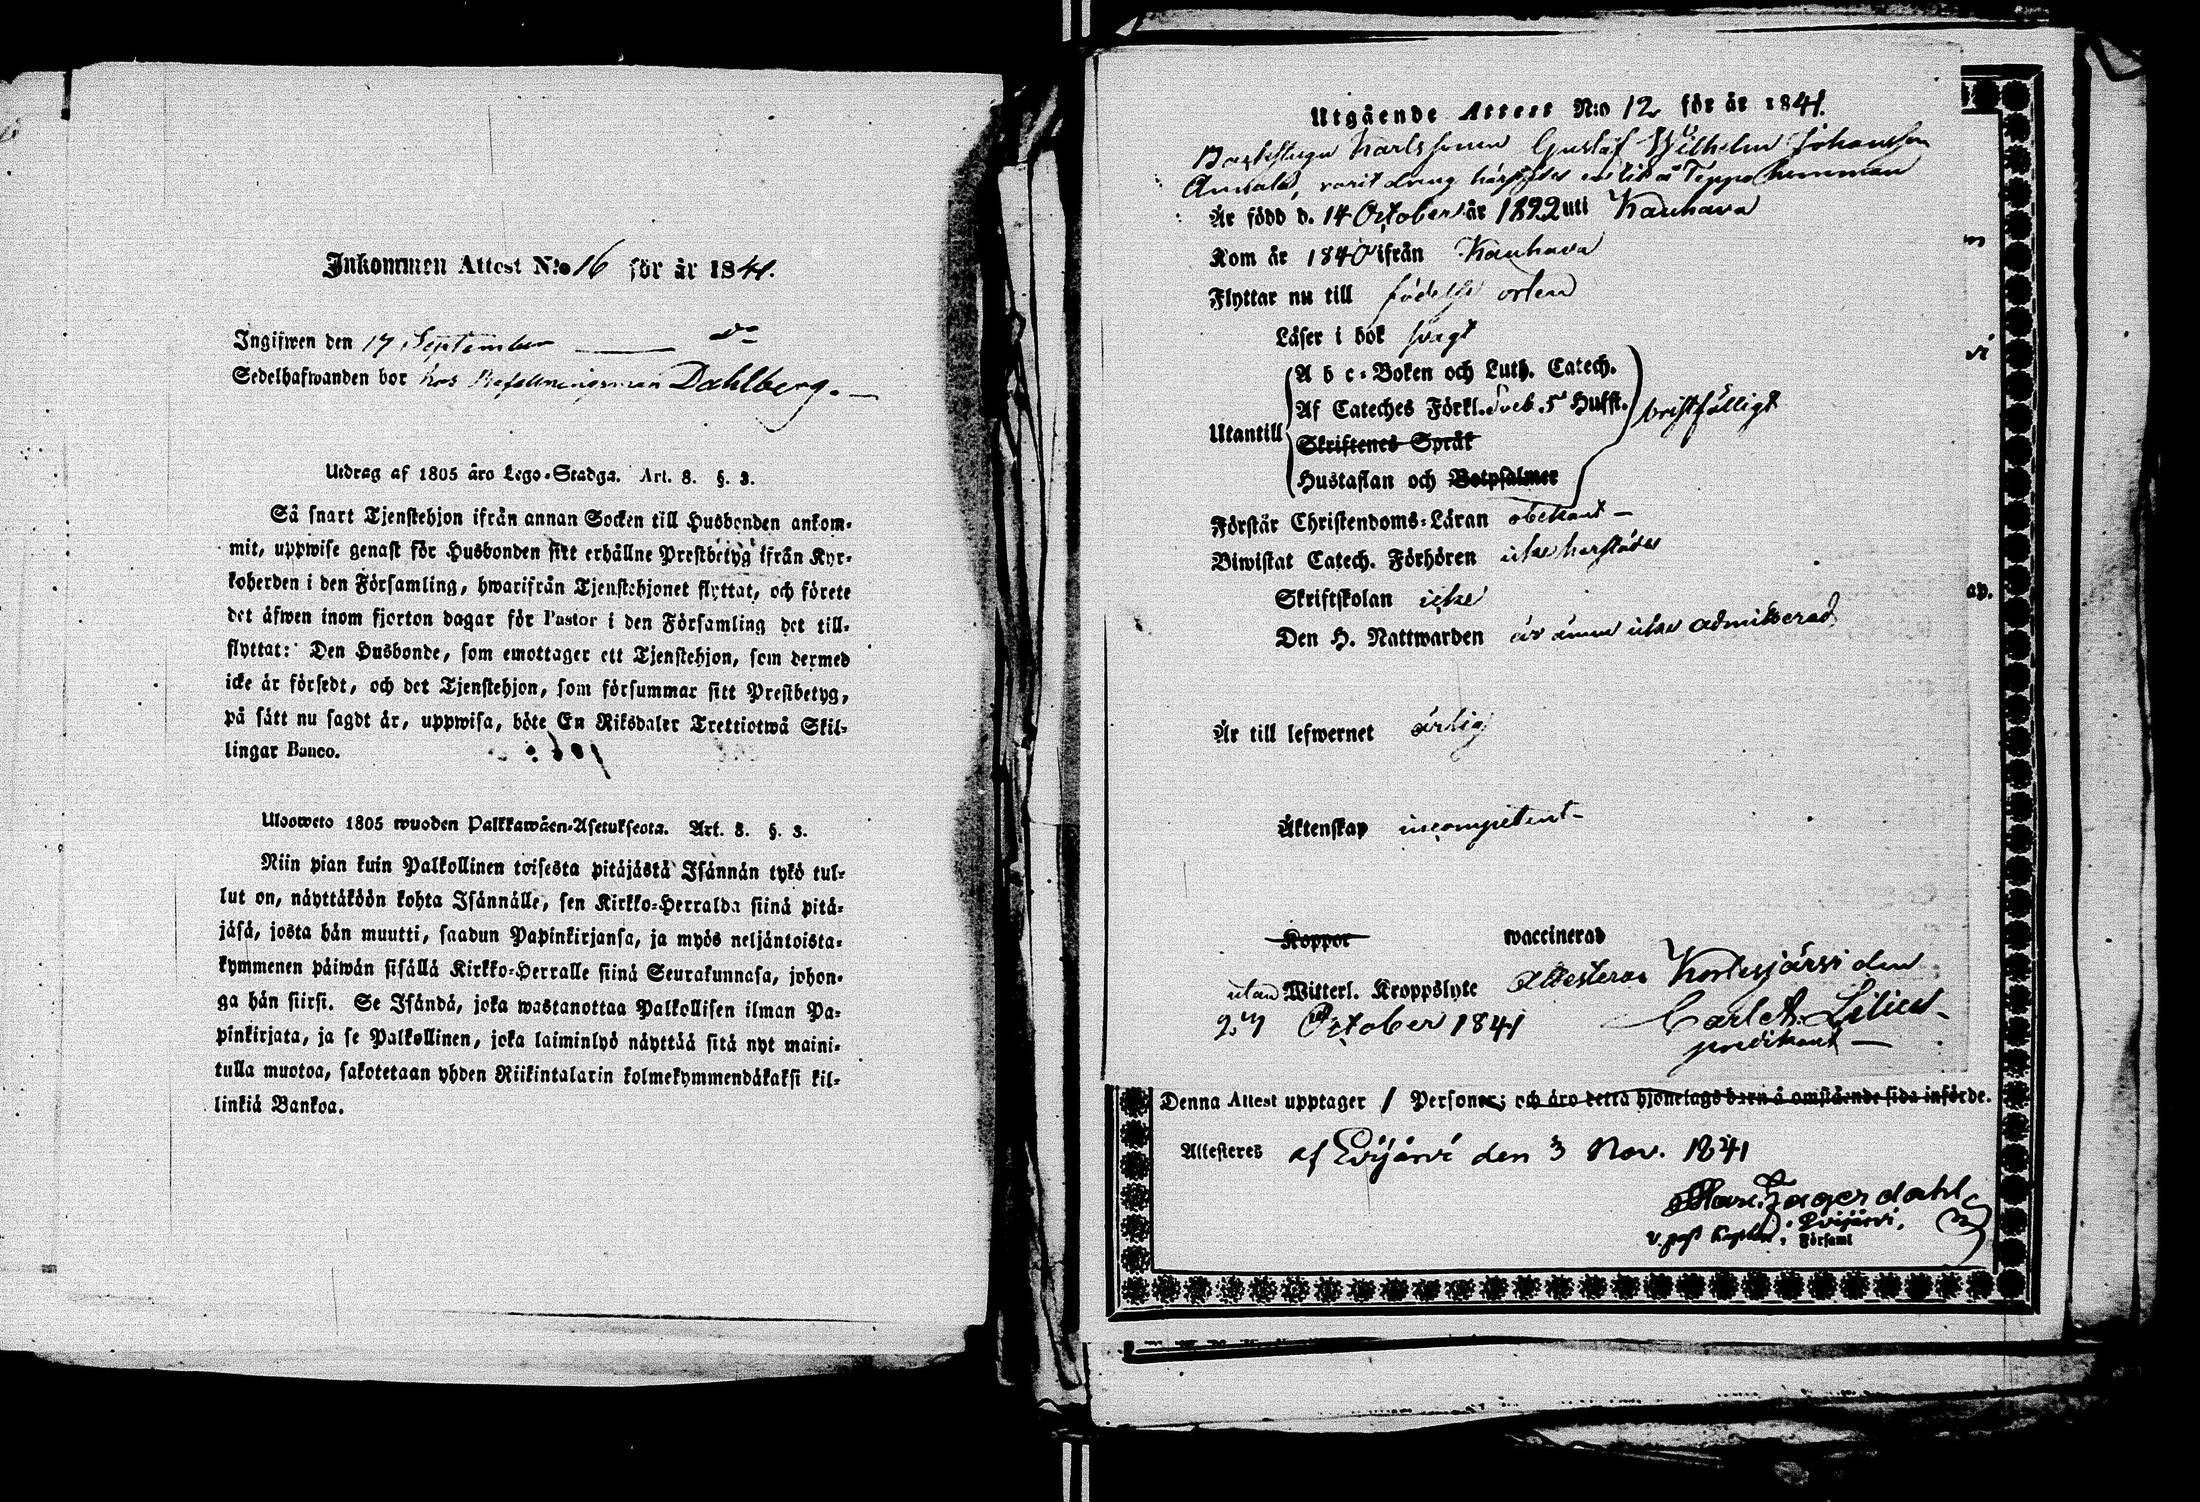 Inkommen Attest N:o 16 för år 1841.
Ingifwen den 17 September
Sedelhafwanden bor hos Dahlberg.
Utdrag af 1805 åro Lego-Stadga. Art. 8. §. 3.
Så snart Tjenstehjon ifrån annan Socken till Husbonden ankom-
mit, uppwise genast för Husbonden sitt erhållne Prestbetyg ifrån Kyr-
koherden i den Församling, hwarifrån Tjenstehjonet flyttat, och förete
det äfwen inom fjorton dagar för Pastor i den Församling det till-
flyttat: Den Husbonde, som emottager ett Tjenstehjon, som dermed
icke är försedt, och det Tjenstehjon, som försummar sitt Prestbetyg,
på sätt nu sagdt är, uppwisa, böte En Riksdaler Trettiotwå Skil-
lingar Banco.
Ulosweto 1805 wuoden Palkkawäen-Asetuksesta. Art. 8. §. 3.
Niin pian kuin Palkollinen toisesta pitäjästä Isännän tykö tul-
lut on, näyttäköön kohta Isännälle, sen Kirkko-Herralda siinä pitä-
jäsä, josta hän muutti, saadun Papinkirjansa, ja myös neljäntoista-
kymmenen päiwän sisällä Kirkko-Herralle siinä Seurakunnasa, johon-
ga hän siirsi. Se Isändä, joka wastanottaa Palkollisen ilman Pa-
pinkirjata, ja se Palkollinen, joka laiminlyö näyttää sitä nyt maini-
tulla muotoa, sakotetaan yhden Riikintalarin kolmekymmendäkaksi kil-
linkiä Bankoa.
Utgående Attest N:o 12 för år 1841.
Karlssonen Gustaf Wilhelm Johansson
varit dräng härstädes Teppo hemman
Är född d. 14 October år 1822 uti Kauhava
Kom år 1840 ifrån Kauhava
Flyttar nu till födelse orten
Läser i bok svagt
Utantill
A b c-Boken och Luth. Catech.
Af Cateches Förkl. Sveb. 5 Hufst.
Skriftenes Språk
Hustaflan och Botpsalmer
bristfälligt
Förstår Christendoms-Läran obekant
Biwistat Catech. Förhören icke härstädes
Skriftskolan icke
Den H. Nattwarden är ännu icke admitterad
Är till lefwernet ärlig
Äktenskap incompetent
Koppor waccinerad
utan Witterl. Kroppslyte Attesterar Kortesjärvi den
October 1841 Carl A. Lilius
predikant
Denna Attest upptager 1 Personer; och äro detta hjonelags barn å omstående sida införde.
Attesteres af Evijärvi den 3 Nov. 1841
Lagerdahl
v. past Evijärvi
Församl